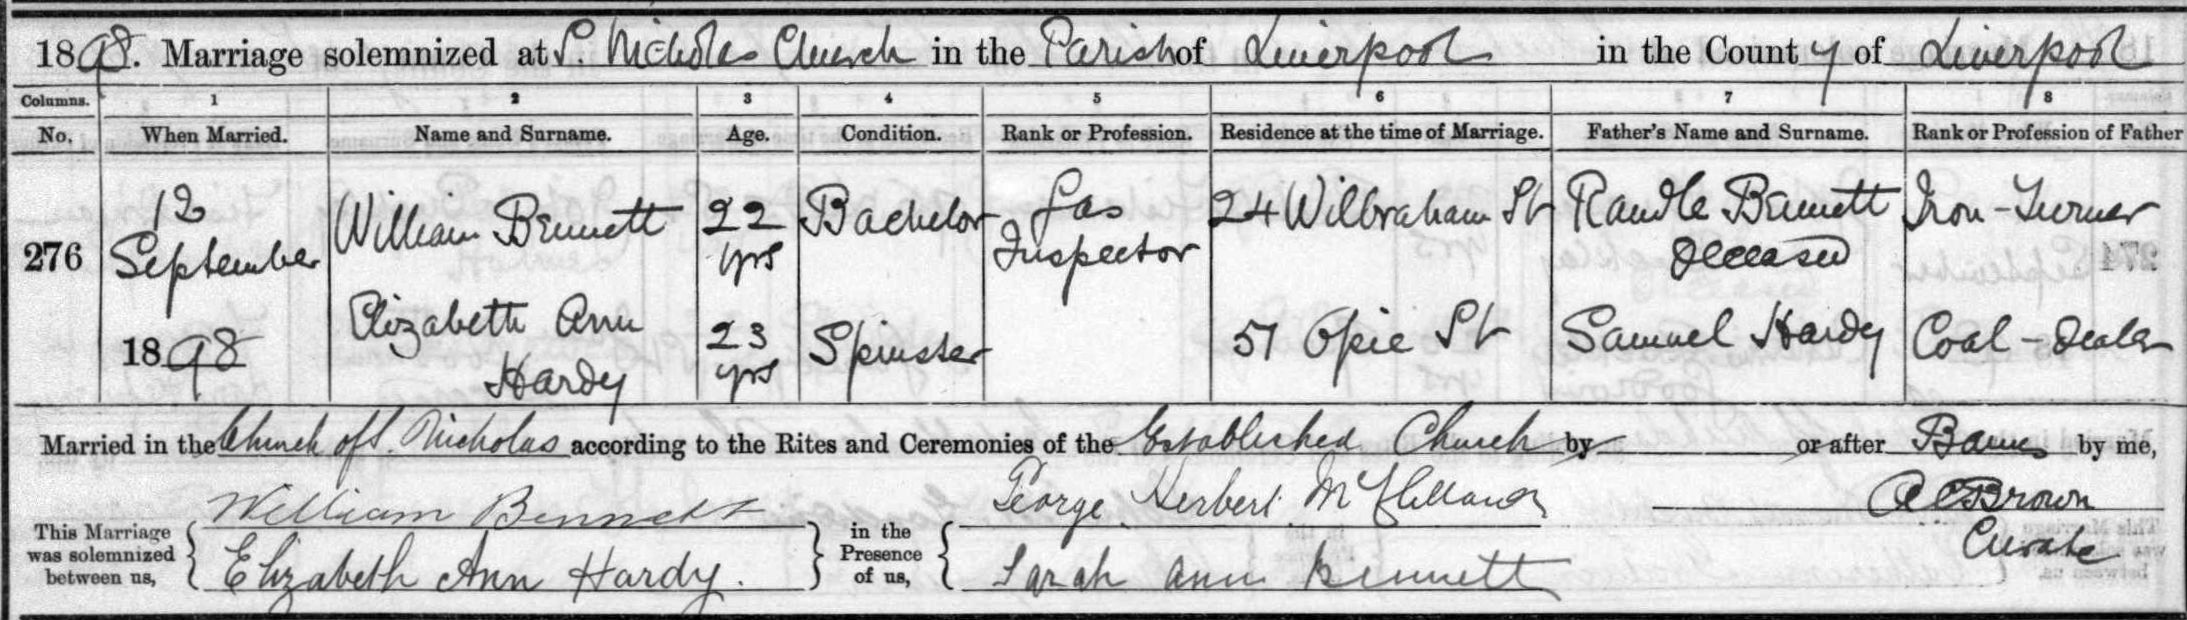 1898. Marriage solemnized at St. Nicholas Church in the Parish of Liverpool in the County of Liverpool
Columns. 1 2 3 4 5 6 7 8
No. When Married. Name and Surname. Age. Condition. Rank or Profession. Residence at the time of Marriage. Father's Name and Surname. Rank or Profession of Father
276 12 September 1898 William Bennett 22 yrs Bachelor Gas Inspector 24 Wilbraham St Randle Bennett Deceased Iron-Turner
Elizabeth Ann Hardy 23 yrs Spinster 51 Opie St Samuel Hardy Coal-dealer
Married in the Church of St. Nicholas according to the Rites and Ceremonies of the Established Church by or after Banns by me,
William Bennett George Herbert A C Brown
This Marriage was solemnized between us, in the Presence of us, Curate
Elizabeth Ann Hardy. Sarah Ann Bennett